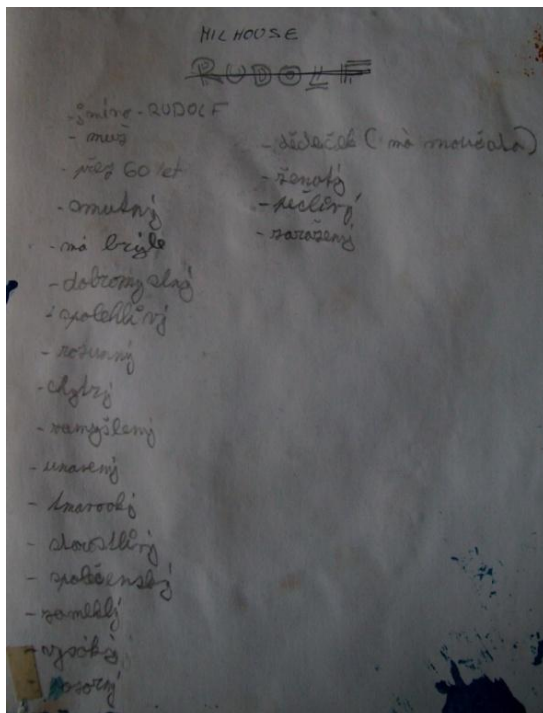 MILHOUSE
RUDOLF
- jméno - RUDOLF
- muž
- přez 60 let
- smutný
- má brýle
- dobromyslný
- spolehlivý
- rozumný
- chytrý
- zamyšlený
- unavený
- starostlivý
- společenský
- zamlklý
- vysoký
- dědeček (má vnoučata)
- ženatý
- pečlivý
- zaražený